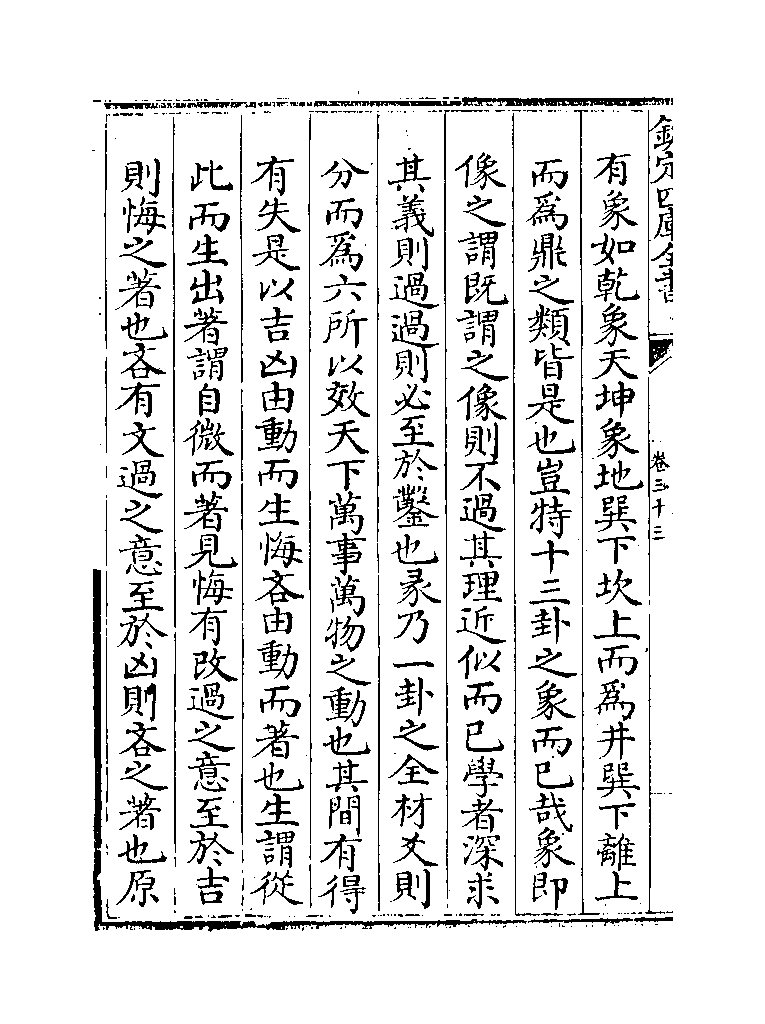 欽定四庫全書
卷三十三
有象如乾象天坤象地巽下坎上而爲井巽下離上
而爲鼎之類皆是也豈特十三卦之象而已哉象即
像之謂既謂之像則不過其理近似而已學者深求
其義則過過則必至於鑿也彖乃一卦之全材爻則
分而爲六所以效天下萬事萬物之動也其間有得
有失是以吉凶由動而生悔吝由動而著也生謂從
此而生出著謂自微而著見悔有改過之意至於吉
則悔之著也吝有文過之意至於凶則吝之著也原